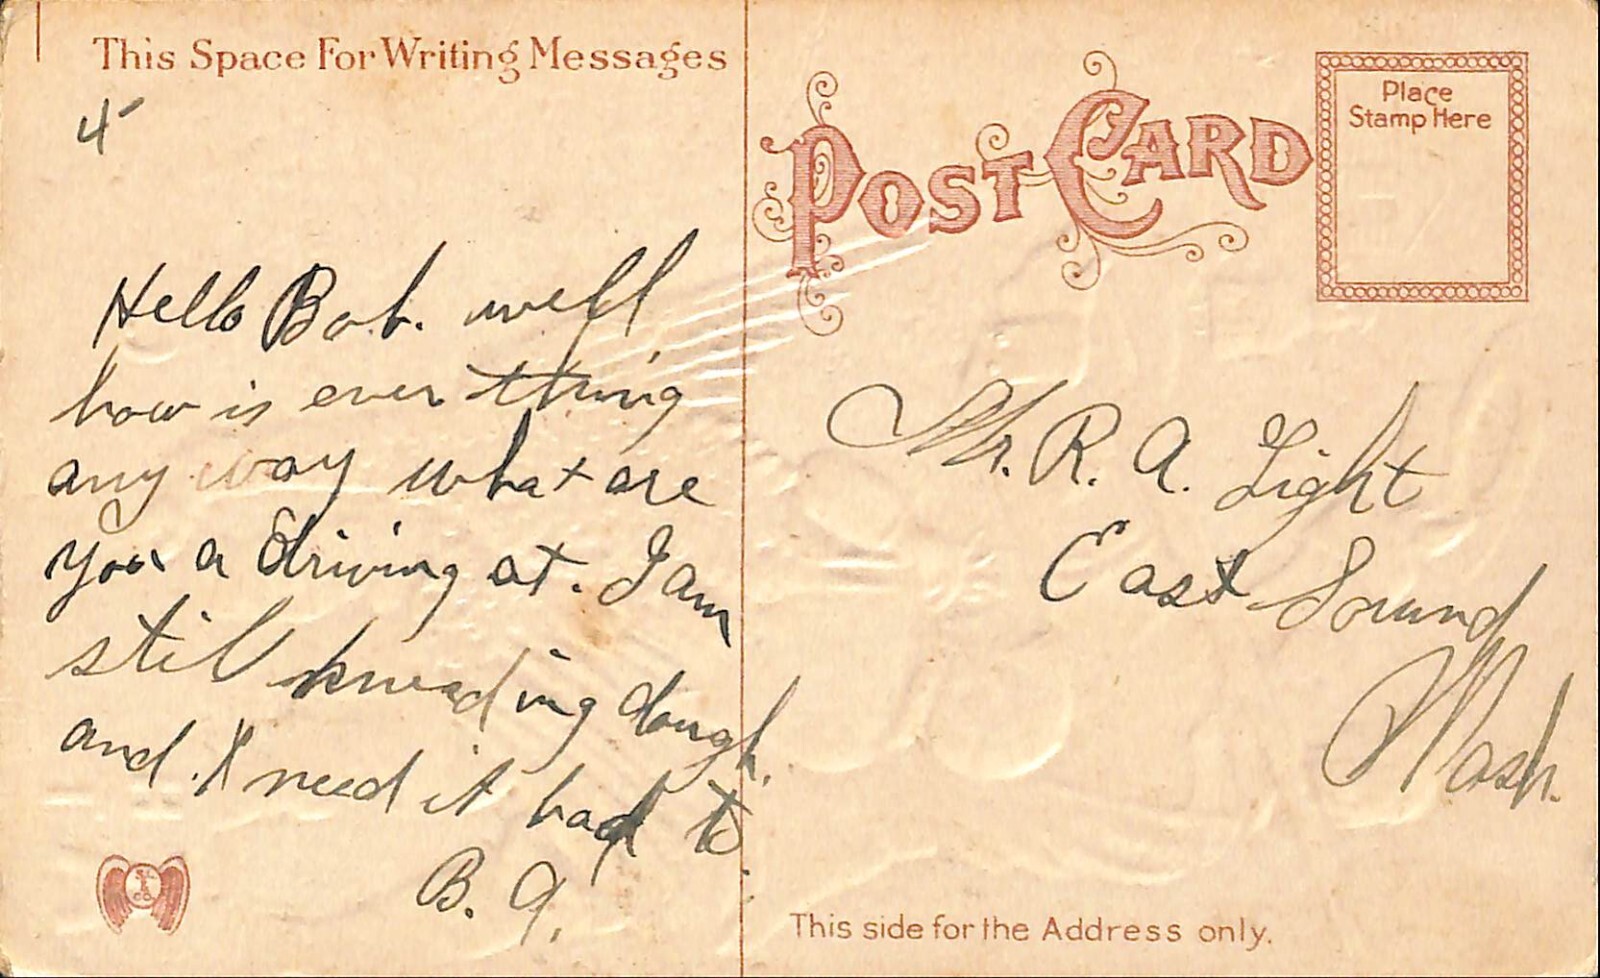 This Space For Writing Messages
4
Hello Bob. well
how is ever thing
any way what are
you a driving at. I am
stil kneading dough.
and. I need it bad to
B. A.
POST CARD
Place
Stamp Here
Mr. R. A. Light
East Sound
Wash.
This side for the Address only.